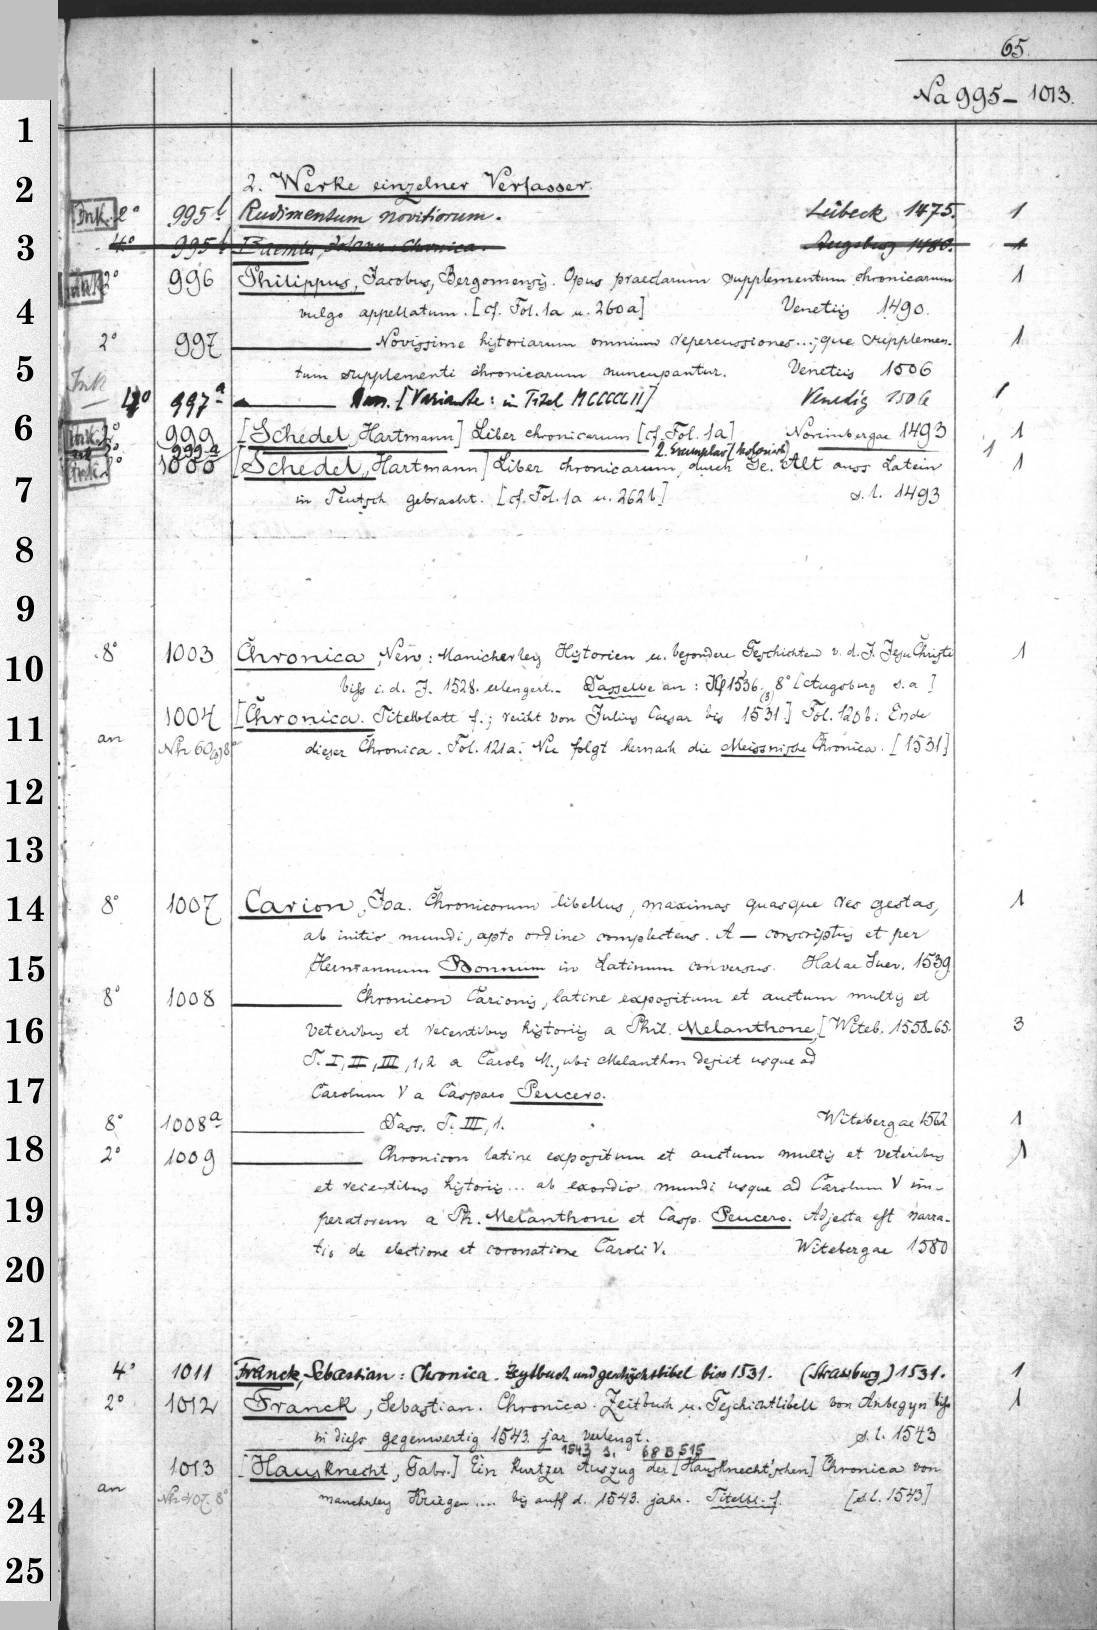 65.
Na 995 – 1013.
2. Werke einzelner Verfasser.
Ink. 2° 995 b Rudimentum novitiorum. Lübeck 1475. 1
4° 995 Baemler, Johann: Chronica. Augsburg 1480. 1
Ink 2° 996 Philippus, Jacobus, Bergomensis. Opus praeclarum supplementum chronicarum 1
vulgo appellatum. [cf. Fol. 1a u. 260a] Venetiis 1490.
2° 997 Novissime historiarum omnium repercussiones...; que supplemen- 1
tum supplementi chronicarum nuncupantur. Venetiis 1506
Ink 4° 997 a [Variante: in Titel MCCCCCII] Venedig 1506 1
Ink. 2° 999 [Schedel, Hartmann] Liber chronicarum [cf. Fol. 1a] Norimbergae 1493 1
999 a 2. Exemplar [kolorirt] 1
Ink. 2° 1000 [Schedel, Hartmann] Liber chronicarum, durch Ge. Alt auss Latein 1
in Teutsch gebracht. [cf. Fol. 1a u. 262b] s. l. 1493
8° 1003 Chronica, New: Manicherley Historien u. besondere Geschichten v. d. J. Jesu Christe 1
biss i. d. J. 1528. erlengert. Dasselbe an: Kf 1536 (3) 8° [Augsburg s. a ]
1004 [Chronica. Titelblatt f.; reicht von Julius Caesar bis 1531.] Fol. 120b: Ende
an Nh 60 (3) 8° dieser Chronica. Fol. 121a: Nu folgt hernach die Meissnische Chronica. [1531]
8° 1007 Carion, Joa. Chronicorum libellus, maximas quasque res gestas, 1
ab initio mundi, apto ordine complectens. A — conscriptus et per
Hermannum Bonnum in Latinum conversus. Halae Suev. 1539
8° 1008 Chronicon Carionis, latine expositum et auctum multis et
veteribus et recentibus historiis a Phil. Melanthone, [Witeb. 1558–65. 3
T. I, II, III, 1, 2 a Carolo M., ubi Melanthon desiit usque ad
Carolum V a Casparo Peucero.
8° 1008 a Dass. T. III, 1. Witebergae 1562 1
2° 1009 Chronicon latine expositum et auctum multis et veteribus 1
et recentibus historiis... ab exordio mundi usque ad Carolum V im-
peratorem a Ph. Melanthone et Casp. Peucero. Adjecta est narra-
tio de electione et coronatione Caroli V. Witebergae 1580
4° 1011 Franck, Sebastian: Chronica. Zeytbuch und geschychtbibel biss 1531. (Strassburg) 1531. 1
2° 1012 Franck, Sebastian. Chronica. Zeitbuch u. Geschichtbibell von Anbegyn biss 1
in diess gegenwertig 1543. jar verlengt. s. l. 1543
1543 3. 68 B 515
1013 [Hausknecht, Fabr.] Ein kurtzer Auszug der [Hausknecht'schen] Chronica von
an Nh 407. 8° mancherley Kriegen .... bis auff d. 1543. jahr. Titelbl. f. [s. l. 1543]
1
2
3
4
5
6
7
8
9
10
11
12
13
14
15
16
17
18
19
20
21
22
23
24
25